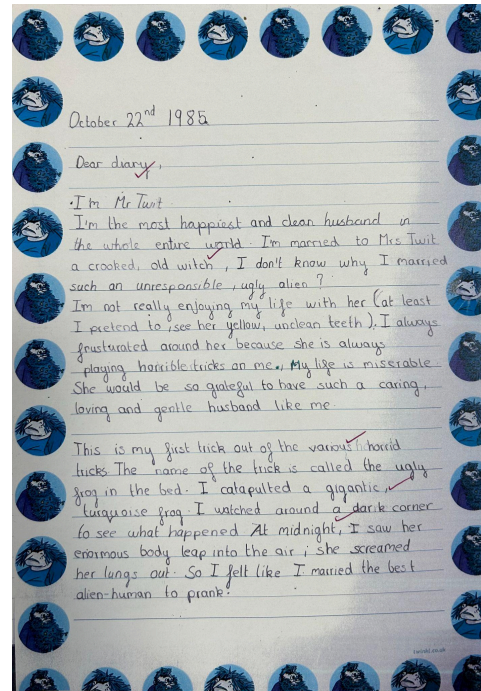 October 22nd 1985
Dear diary,
I'm Mr Twit.
I'm the most happiest and clean husband in
the whole entire world. I'm married to Mrs Twit
a crooked, old witch, I don't know why I married
such an unresponsible, ugly alien?
I'm not really enjoying my life with her (at least
I pretend to, see her yellow, unclean teeth). I always
frusturated around her because she is always
playing horrible tricks on me., My life is miserable
She would be so grateful to have such a caring,
loving and gentle husband like me.
This is my first trick out of the various horrid
tricks. The name of the trick is called the ugly
frog in the bed. I catapulted a gigantic,
turquoise frog. I watched around a dark corner
to see what happened. At midnight, I saw her
enormous body leap into the air; she screamed
her lungs out. So I felt like I married the best
alien-human to prank.